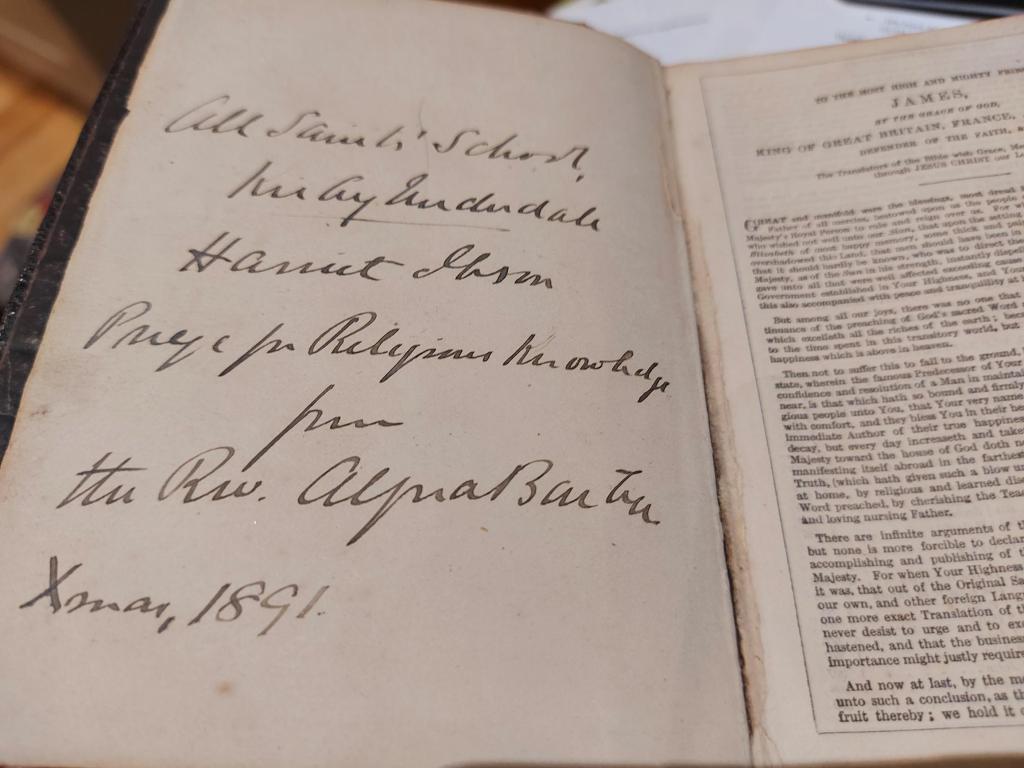 All Saints' School,
Kirby Underdale
Harriet Ibson
Prize for Religious Knowledge
from
the Rev.
Xmas, 1891.
TO THE MOST HIGH AND MIGHTY
JAMES,
BY THE GRACE OF GOD,
KING OF GREAT BRITAIN, FRANCE,
DEFENDER OF THE FAITH, &
The Translators of the Bible wish Grace,
through JESUS CHRIST our
GREAT and manifold were the blessings, most dread
Father of all mercies, bestowed upon us the people
Majesty's Royal Person to rule and reign over us. For
who wished not well unto our Sion, that upon the setting
Elizabeth of most happy memory, some thick and
overshadowed this Land, that men should have been in
that it should hardly be known, who was to direct the
Majesty, as of the Sun in his strength, instantly
gave unto all that were well affected exceeding cause
Government established in Your Highness, and
this also accompanied with peace and tranquillity at
But among all our joys, there was no one that
tinuance of the preaching of God's sacred Word
which excelleth all the riches of the earth;
to the time spent in this transitory world, but
happiness which is above in heaven.
Then not to suffer this to fall to the ground,
state, wherein the famous Predecessor of Your
confidence and resolution of a Man in
near, is that which hath so bound and firmly
gious people unto You, that Your very name
with comfort, and they bless You in their
immediate Author of their true
decay, but every day increaseth and
Majesty toward the house of God doth
manifesting itself abroad in the
Truth, (which hath given such a blow
at home, by religious and learned
Word preached, by cherishing the
and loving nursing Father.
There are infinite arguments of
but none is more forcible to
accomplishing and publishing of
Majesty. For when Your Highness
it was, that out of the Original
our own, and other foreign
one more exact Translation of
never desist to urge and to
hastened, and that the
importance might justly require
And now at last, by the
unto such a conclusion, as
fruit thereby; we hold it